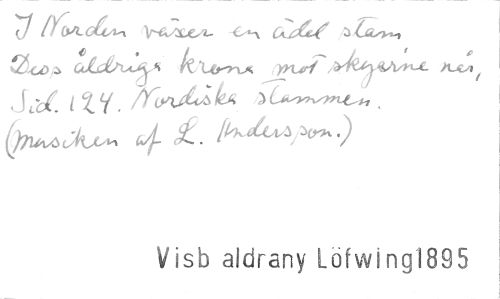 I Norden växer en ädel stam
Dess åldriga krona mot skyarne når,
Sid. 124. Nordiska stammen.
(Musiken af L. Andersson.)
Visb aldrany Löfwing1895